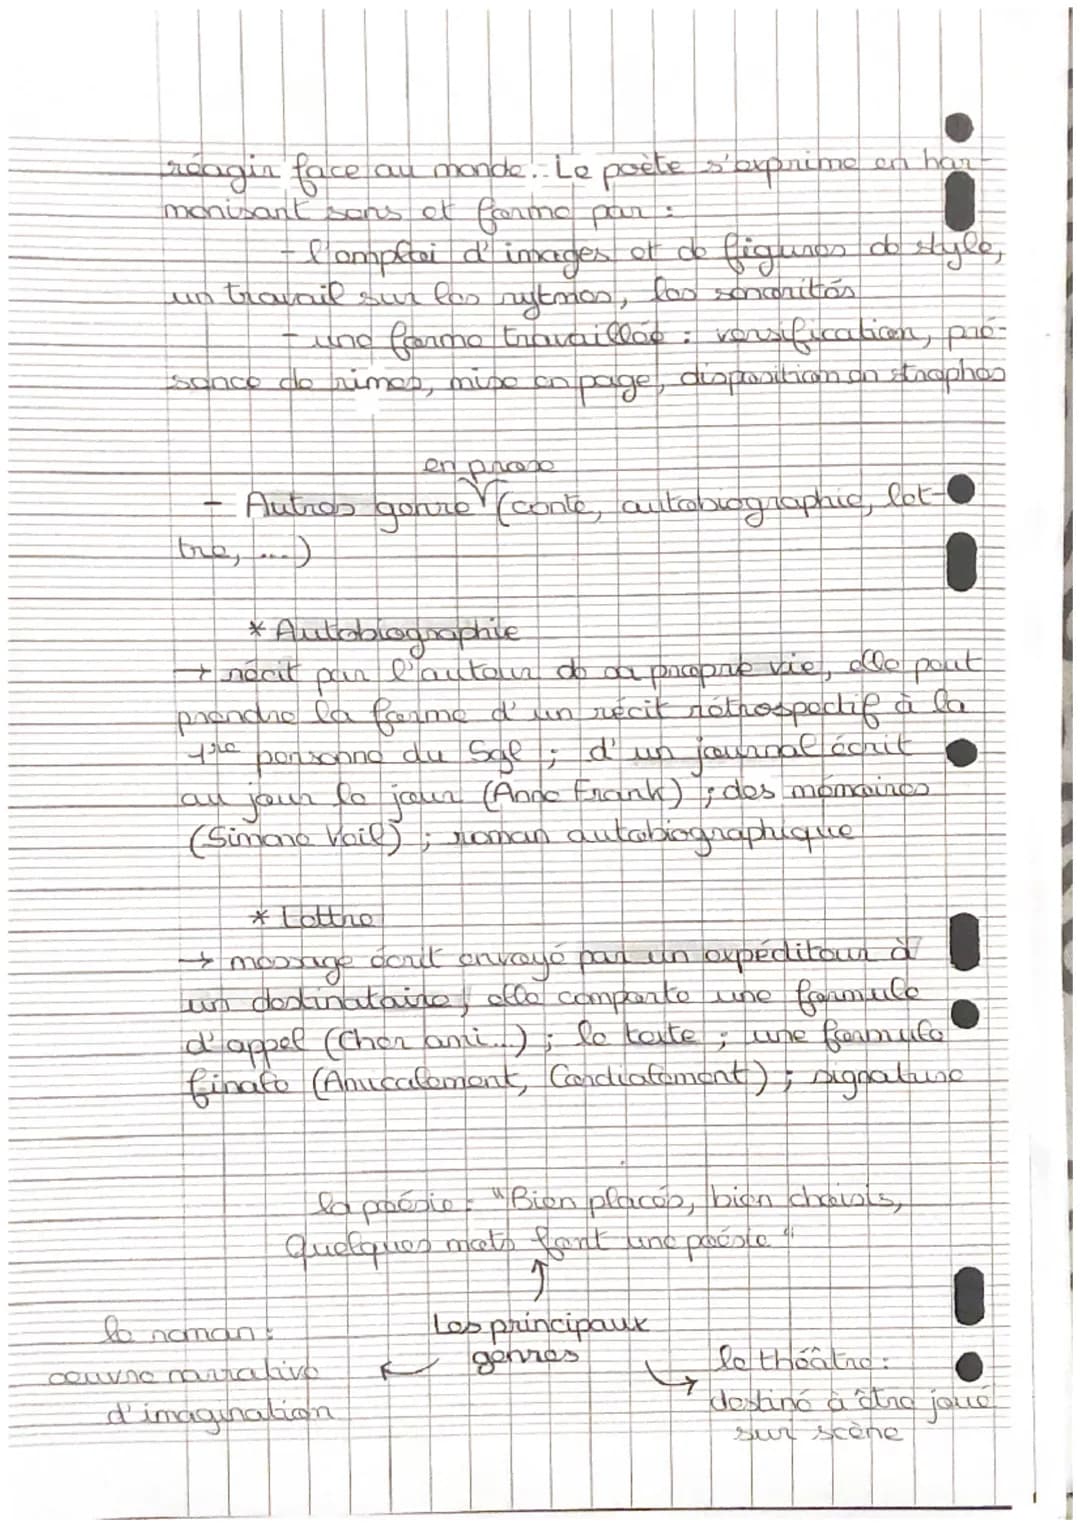 réagir face au monde. Le poète s'exprime en har-
monisant sens et forme par :
- l'emploi d'images et de figures de style,
un travail sur les rytmes, les sonorités
- une forme travaillée : versification, pré-
sence de rimes, mise en page, disposition en strophes
en prose
- Autres genre (conte, autobiographie, let-
tre, ....)
* Autobiographie
→ récit par l'auteur de sa propre vie, elle peut
prendre la forme d'un récit rétrospectif à la
1ère personne du Sgl ; d'un journal écrit
au jour le jour (Anne Frank) ; des mémoires
(Simone Veil) ; roman autobiographique
* Lettre
→ message écrit envoyé par un expéditeur à
un destinataire, elle comporte une formule
d'appel (Cher ami...) ; le texte ; une formule
finale (Amicalement, Cordialement) ; signature
la poésie : "Bien placés, bien choisis,
Quelques mots font une poésie"
↑
Les principaux
genres
le roman :
œuvre narrative ←
d'imagination
→ le théâtre :
destiné à être joué
sur scène